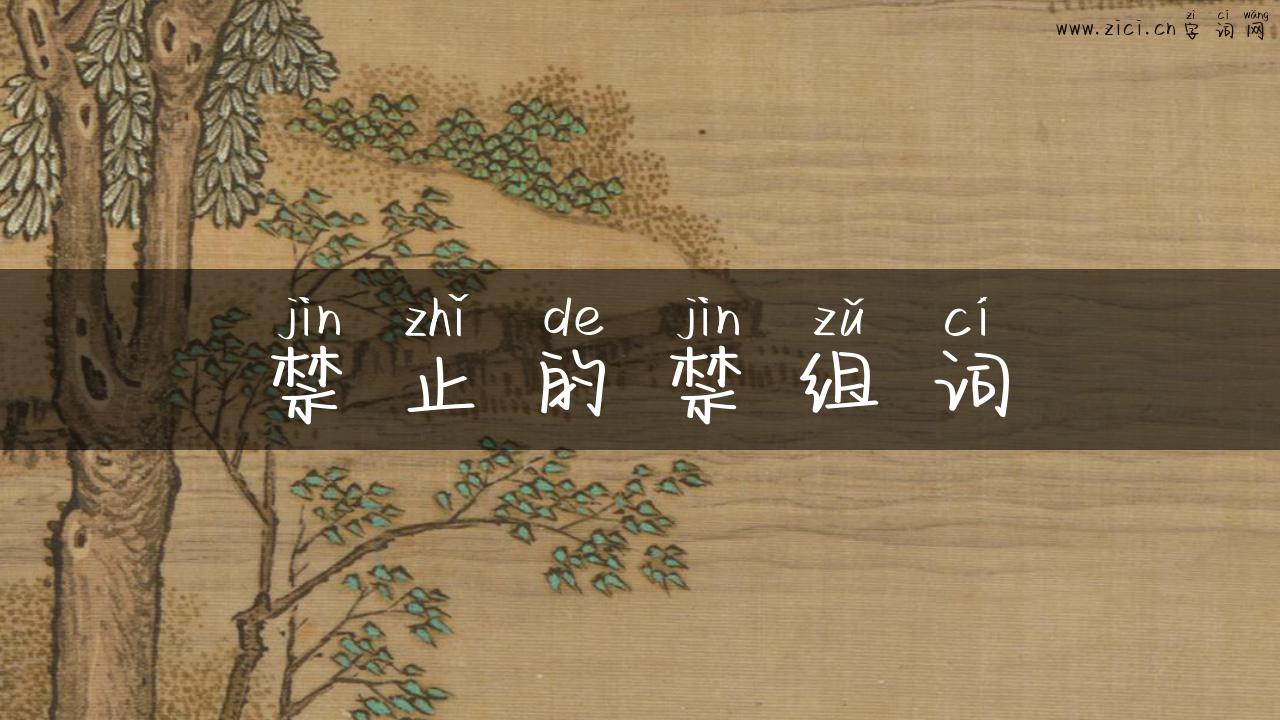 zì cí wǎng
www.zici.cn 字词网
jìn zhǐ de jìn zǔ cí
禁止的禁组词